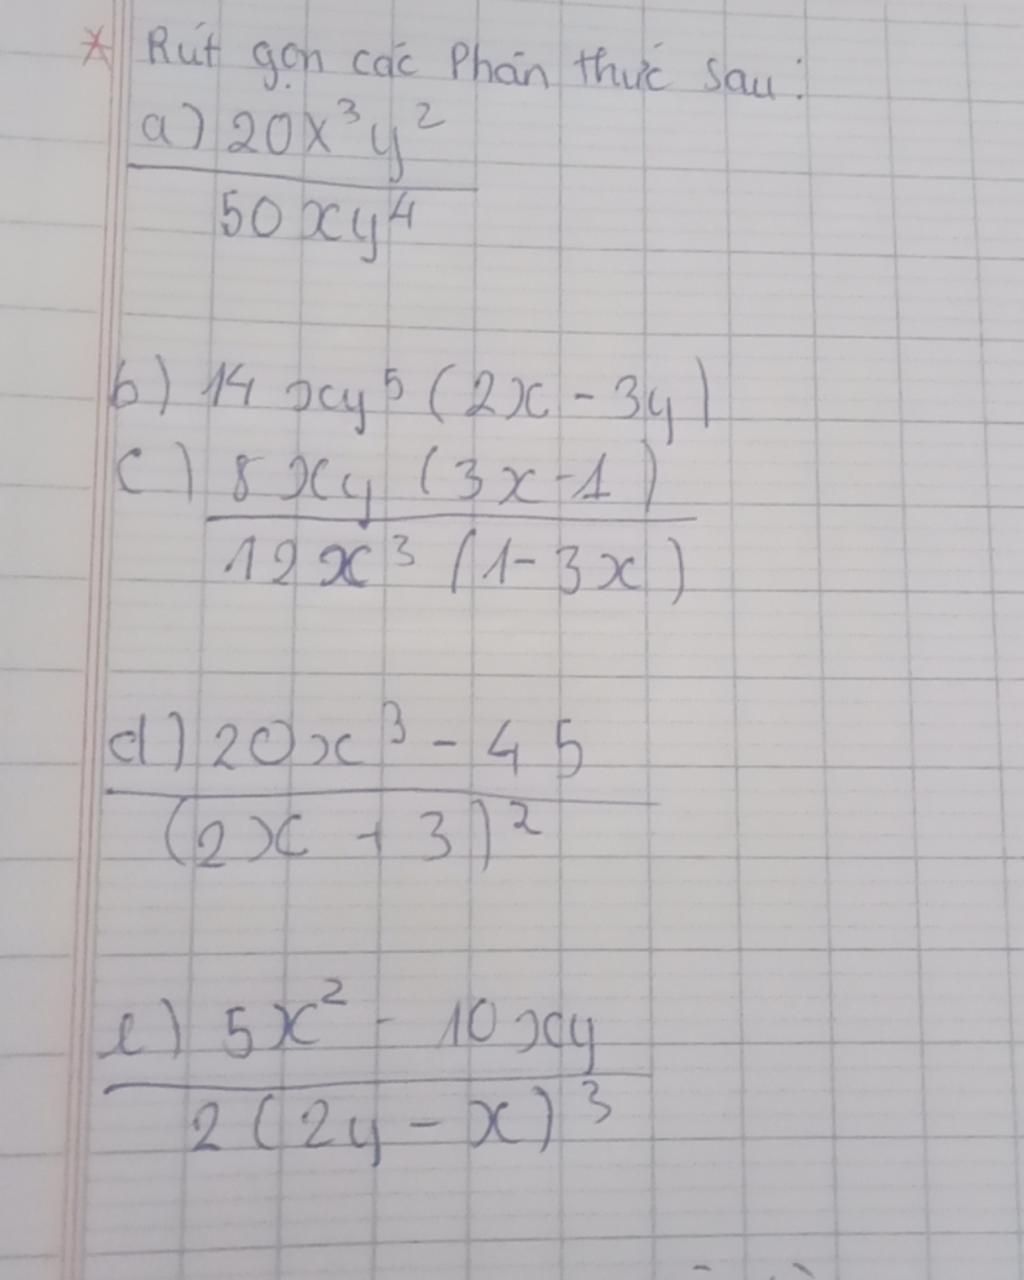 * Rút gọn các Phân thức sau:
a) 20x³y²
50xy⁴
b) 14xy⁵(2x - 3y)
c) 8xy(3x-1)
12x³(1-3x)
d) 20x³ - 45
(2x + 3)²
e) 5x² - 10xy
2(2y - x)³